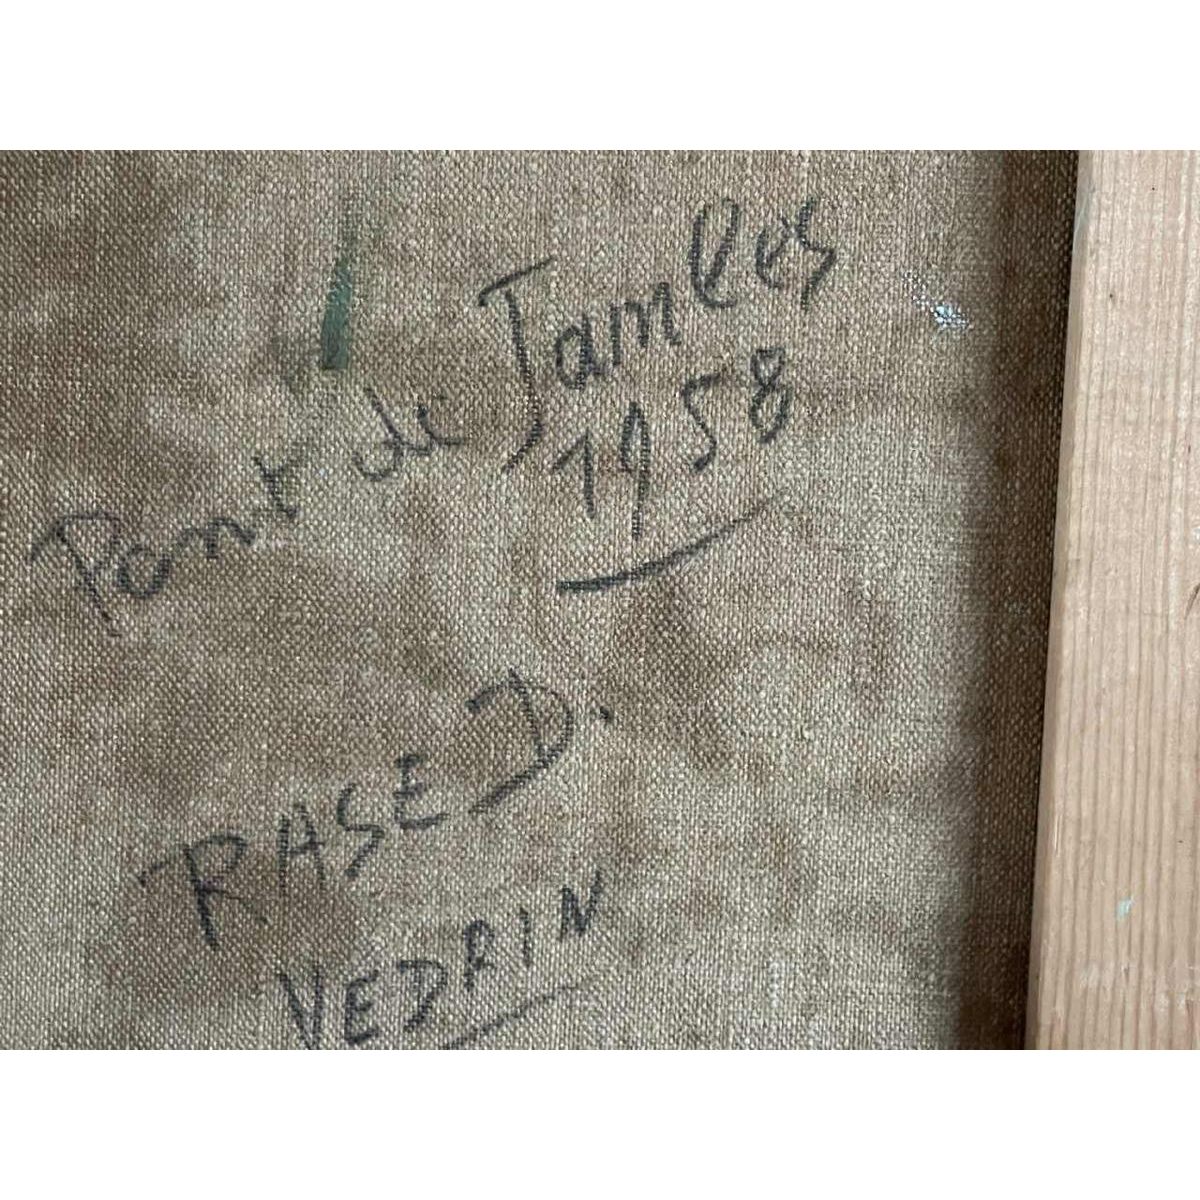 Pont de Jambes
1958
RASE D.
VEDRIN